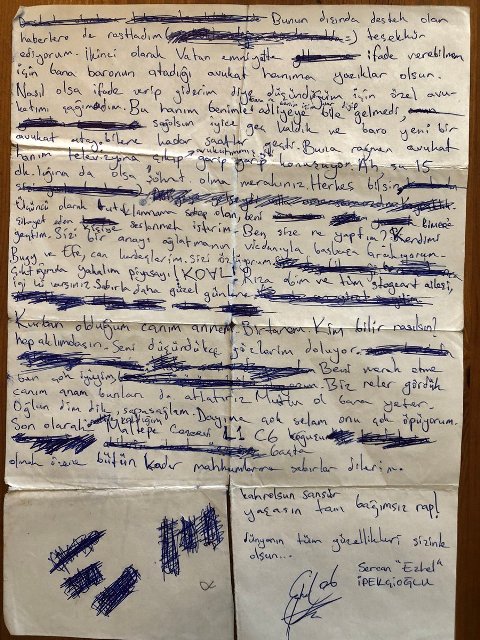 Bunun dışında destek olan
haberlere de rastladım =) teşekkür
ediyorum. İkinci olarak Vatan emniyette ifade verebilmem
için bana baronun atadığı avukat hanıma yazıklar olsun.
Nasıl olsa ifade verip giderim diye düşündüğüm için özel avu-
katımı çağırmadım. Bu hanım benimle adliyeye bile gelmedi,
sağolsun iyice geç kaldık ve baro yeni bir
avukat atayabilene kadar saatler geçti. Buna rağmen avukat
hanım televizyona çıkıp garip garip konuşuyor. Ah, şu 15
dk.lığına da olsa şöhret olma merakınız. Herkes bilsin
Üçüncü olarak tutuklanmama sebep olan, beni
şikayet eden kişiye seslenmek isterim. Ben size ne yaptım? Kendimi
geçtim. Sizi bir anayı ağlatmanın vicdanıyla başbaşa bırakıyorum.
Bugy ve Efe, can kardeşlerim. Sizi öz
Çıktığımda yakalım piyasayı! KOVLİ? Rıza abim ve tüm stogeart ailesi,
iyi ki varsınız. Sabırla daha güzel günlere
Kurban olduğum canım annem. Birtanem. Kim bilir nasılsın?
hep aklımdasın. Seni düşündükçe gözlerim doluyor.
Beni merak etme
ben çok iyiyim Biz neler gördük
canım anam bunları da atlatırız. Mutlu ol bana yeter.
Oğlan dim dik, sapasağlam. Dayıma çok selam onu çok öpüyorum.
Son olarak yaptığım
Maltepe Cezaevi L1 C6 koğuşu
başta
olmak üzere bütün kader mahkumlarına sabırlar dilerim.
kahrolsun sansür
yaşasın tam bağımsız rap!
dünyanın tüm güzellikleri sizinle
olsun...
Sercan "Ezhel"
İPEKÇİOĞLU